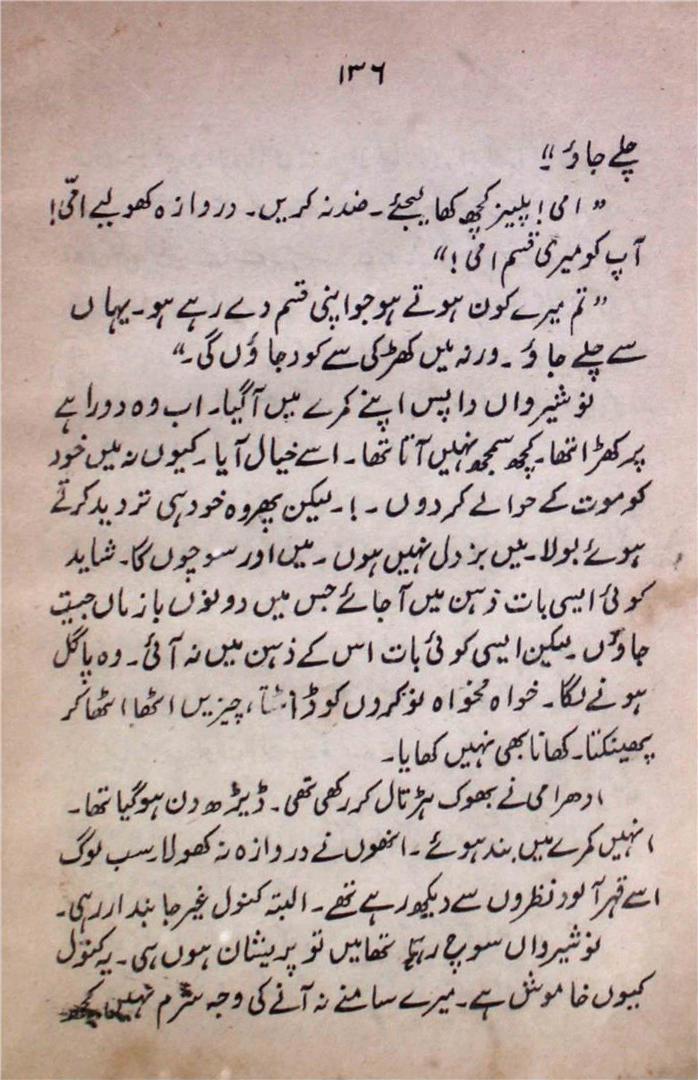 ۱۳۶
چلے جاؤ "
" امی! پلیز کچھ کھا لیجئے۔ ضد نہ کریں۔ دروازہ کھولیے امّی!
آپ کو میری قسم امی! "
" تم میرے کون ہوتے ہو جو اپنی قسم دے رہے ہو۔ یہاں
سے چلے جاؤ ۔ ورنہ میں کھڑکی سے کود جاؤں گی۔ "
نوشیرواں واپس اپنے کمرے میں آگیا۔ اب وہ دوراہے
پر کھڑا تھا۔ کچھ سمجھ نہیں آتا تھا۔ اسے خیال آیا۔ کیوں نہ میں خود
کو موت کے حوالے کر دوں ۔!۔ لیکن پھر وہ خود ہی تردید کرتے
ہوئے بولا۔ میں بزدل نہیں ہوں ۔ میں اور سوچوں گا۔ شاید
کوئی ایسی بات ذہن میں آجائے جس میں دونوں بازیاں جیت
جاؤں۔ لیکن ایسی کوئی بات اس کے ذہن میں نہ آئی۔ وہ پاگل
ہونے لگا۔ خواہ مخواہ نوکروں کو ڈانٹتا، چیزیں اٹھا اٹھا کر
پھینکتا۔ کھانا بھی نہیں کھایا۔
ادھر امی نے بھوک ہڑتال کر رکھی تھی۔ ڈیڑھ دن ہوگیا تھا۔
انہیں کمرے میں بند ہوئے ۔ انھوں نے دروازہ نہ کھولا۔ سب لوگ
اسے قہر آلود نظروں سے دیکھ رہے تھے۔ البتہ کنول غیر جانبدار رہی۔
نوشیرواں سوچ رہا تھا میں تو پریشان ہوں ہی۔ یہ کنول
کیوں خاموش ہے۔ میرے سامنے نہ آنے کی وجہ شرم نہیں کچھ